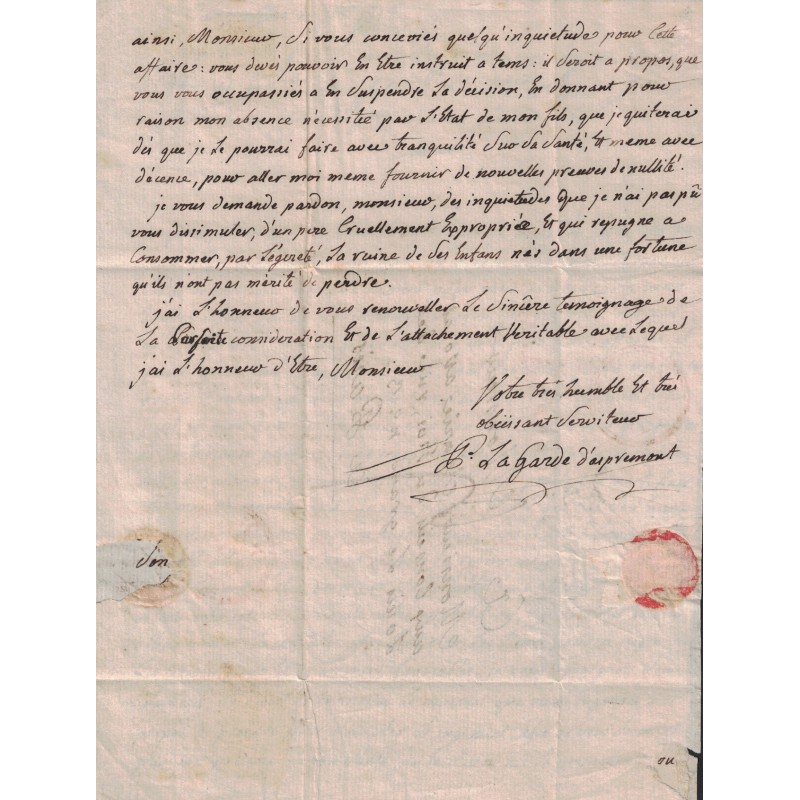 ainsi, Monsieur, Si vous conceviés quelqu'inquietude pour Cette
affaire: vous devés pouvoir En Etre instruit a tems: il Seroit a propos, que
vous vous occupassiés a En Suspendre La décision, En donnant pour
raison mon absence nécéssitée par L'Etat de mon fils, que je quiterai
dès que je Le pourrai faire avec tranquilité Sur Sa Santé, Et meme avec
décence, pour aller moi meme fournir de nouvelles preuves de nullité.
je vous demande pardon, monsieur, des inquietudes que je n'ai pas pû
vous dissimuler, d'un pere Cruellement Exproprié, Et qui repugne a
Consommer, par Légereté, La ruine de Ses Enfans nés dans une fortune
qu'ils n'ont pas mérité de perdre.
j'ai L'honneur de vous renouveller Le Sincère temoignage de
La Parfaite consideration Et de L'attachement Veritable avec Lequel
j'ai L'honneur d'Etre, Monsieur
Votre trés humble Et trés
obéissant Serviteur
La Garde d'aspremont
Son
ou